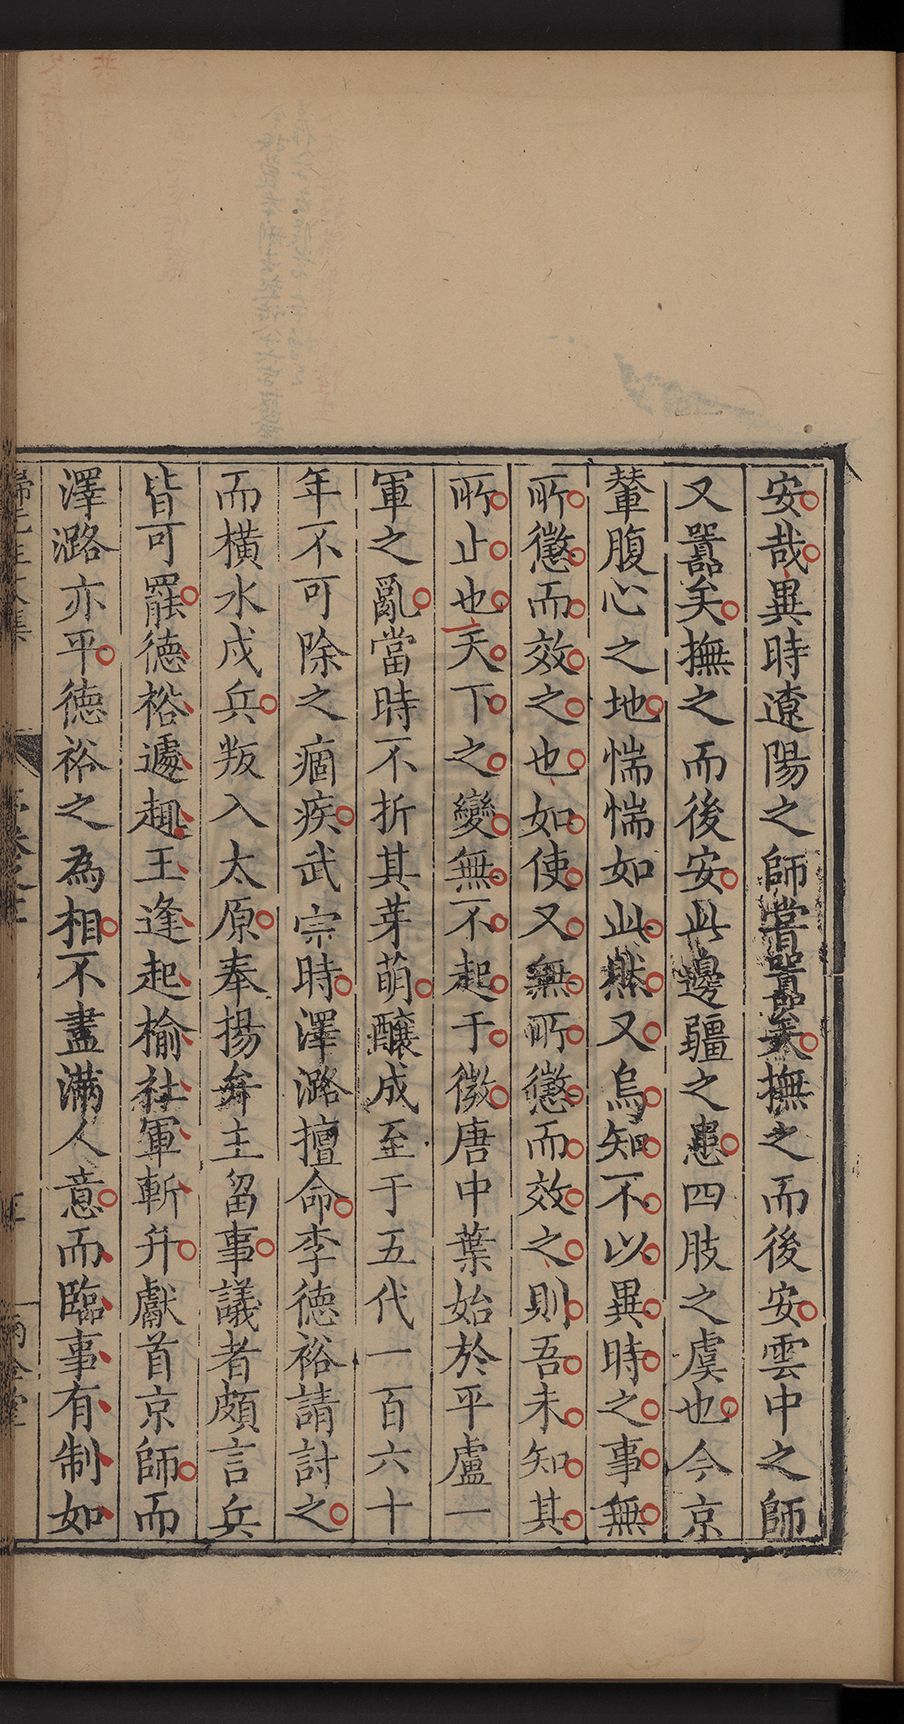 安哉異時遼陽之師嘗嚣矣撫之而後安雲中之師
又嚣矣撫之而後安此邊疆之患四肢之虞也今京
輦腹心之地惴惴如此然又烏知不以異時之事無
所懲而效之也如使又無所懲而效之則吾未知其
所止也天下之變無不起于微唐中葉始於平盧一
軍之亂當時不折其芽萌釀成至于五代一百六十
年不可除之痼疾武宗時澤潞擅命李德裕請討之
而橫水戍兵叛入太原奉揚弁主留事議者頗言兵
皆可罷德裕遽趣王逢起榆社軍斬弁獻首京師而
澤潞亦平德裕之為相不盡滿人意而臨事有制如